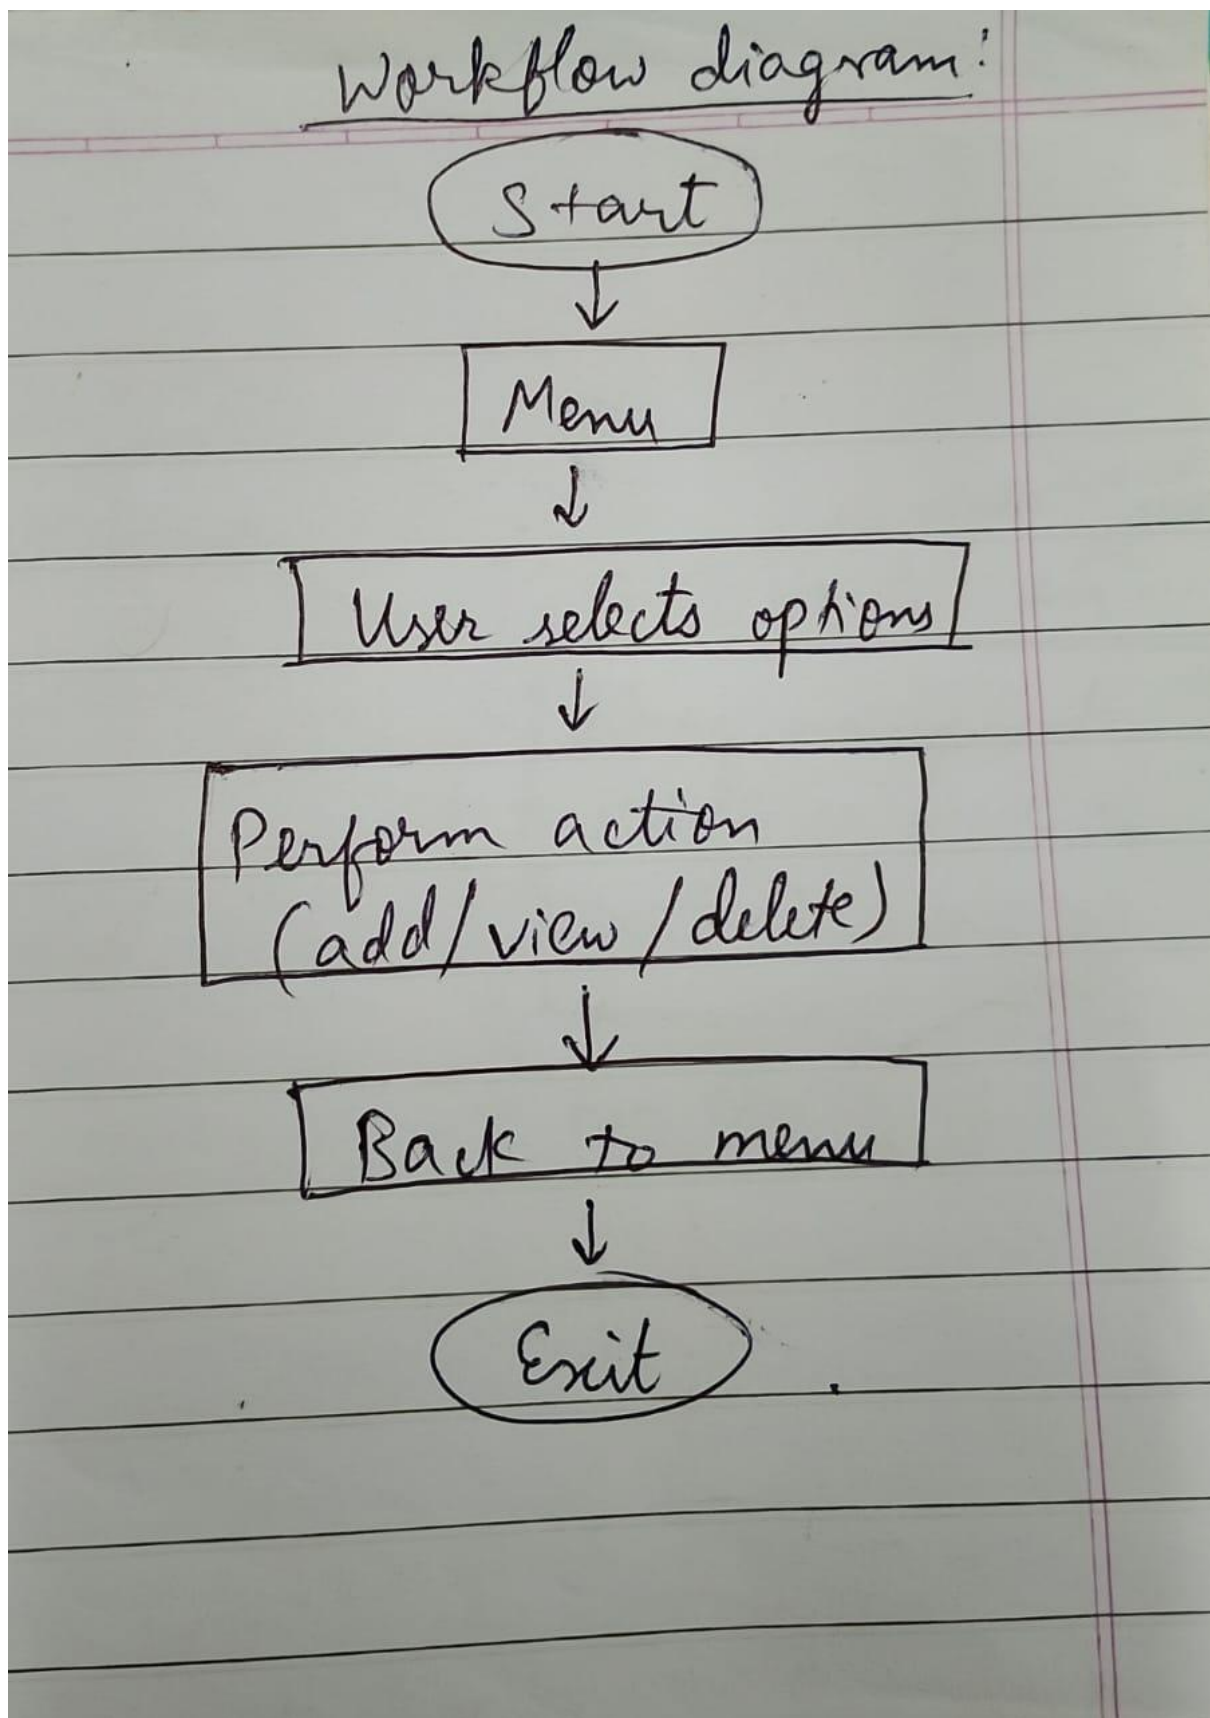 Workflow diagram:
Start
Menu
User selects options
Perform action
(add/view/delete)
Back to menu
Exit